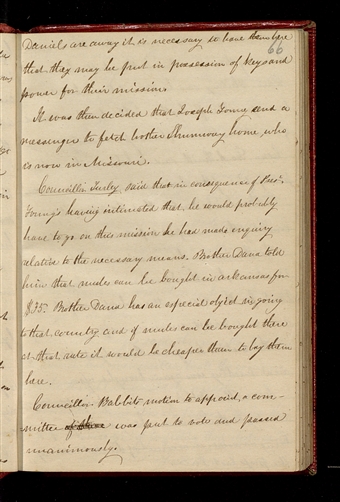 Daniels are away it is necessary to have them here
66
that they may be put in possession of keys and
power for their mission.
It was then decided that Joseph Toronto send a
messenger to fetch brother Shumway home, who
is now in Missouri.
Councillor Turley said that in consequence of Prest.
Young's having intimated that, he would probably
have to go on this mission he had made enquiry
relative to the necessary means. Brother Dana told
him that mules can be bought in arkansas for
$35. Brother Dana has an especial object in going
to that country and if mules can be bought there
at that rate it would be cheaper than to buy them
here.
Councillor Babbits motion to appoint a com-
mittee was put to vote and passed
unanimously.